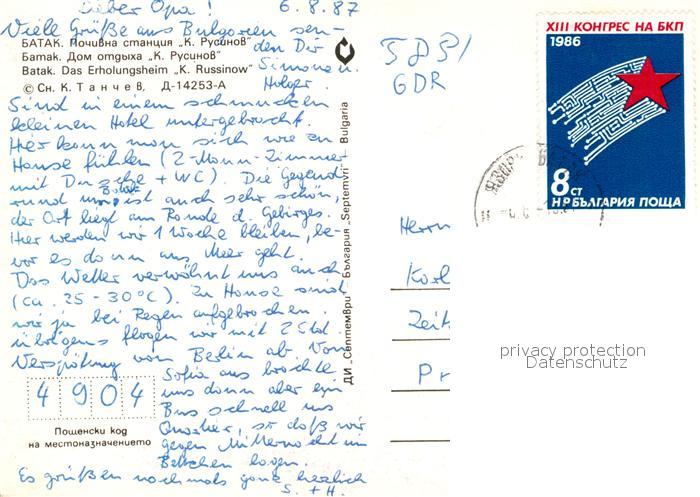 Lieber Opa! 6.8.87
Viele Grüße aus Bulgarien sen-
den Dir
Simone u.
Holger.
БАТАК. Почивна станция „К. Русинов"
Батак. Дом отдыха „К. Русинов"
Batak. Das Erholungsheim „K. Russinow"
© Сн. К. Танчев, Д-14253-А
Sind in einem schmucken
kleinen Hotel untergebracht.
Hier kann man sich wie zu
Hause fühlen (2-Mann-Zimmer
mit Dusche + WC). Die Gegend
rund um Batak ist auch sehr schön,
der Ort liegt am Rande d. Gebirges.
Hier werden wir 1 Woche bleiben, be-
vor es dann ans Meer geht.
Das Wetter verwöhnt uns auch
(ca. 25-30°C). Zu Hause sind
wir ja bei Regen aufgebrochen.
übrigens flogen wir mit 2 Std.
Verspätung von Berlin ab. Von
Sofia aus brachte
uns dann aber ein
Bus schnell ins
Quartier, so daß wir
gegen Mitternacht im
Bettchen lagen.
Es grüßen nochmals ganz herzlich
S. + H.
4 9 0 4
Пощенски код
на местоназначението
ДИ „Септември" – България „Septemvri" – Bulgaria
GDR
XIII КОНГРЕС НА БКП
1986
8 СТ
НР БЪЛГАРИЯ ПОЩА
Herrn
Karl
Zeit
Pr
privacy protection
Datenschutz